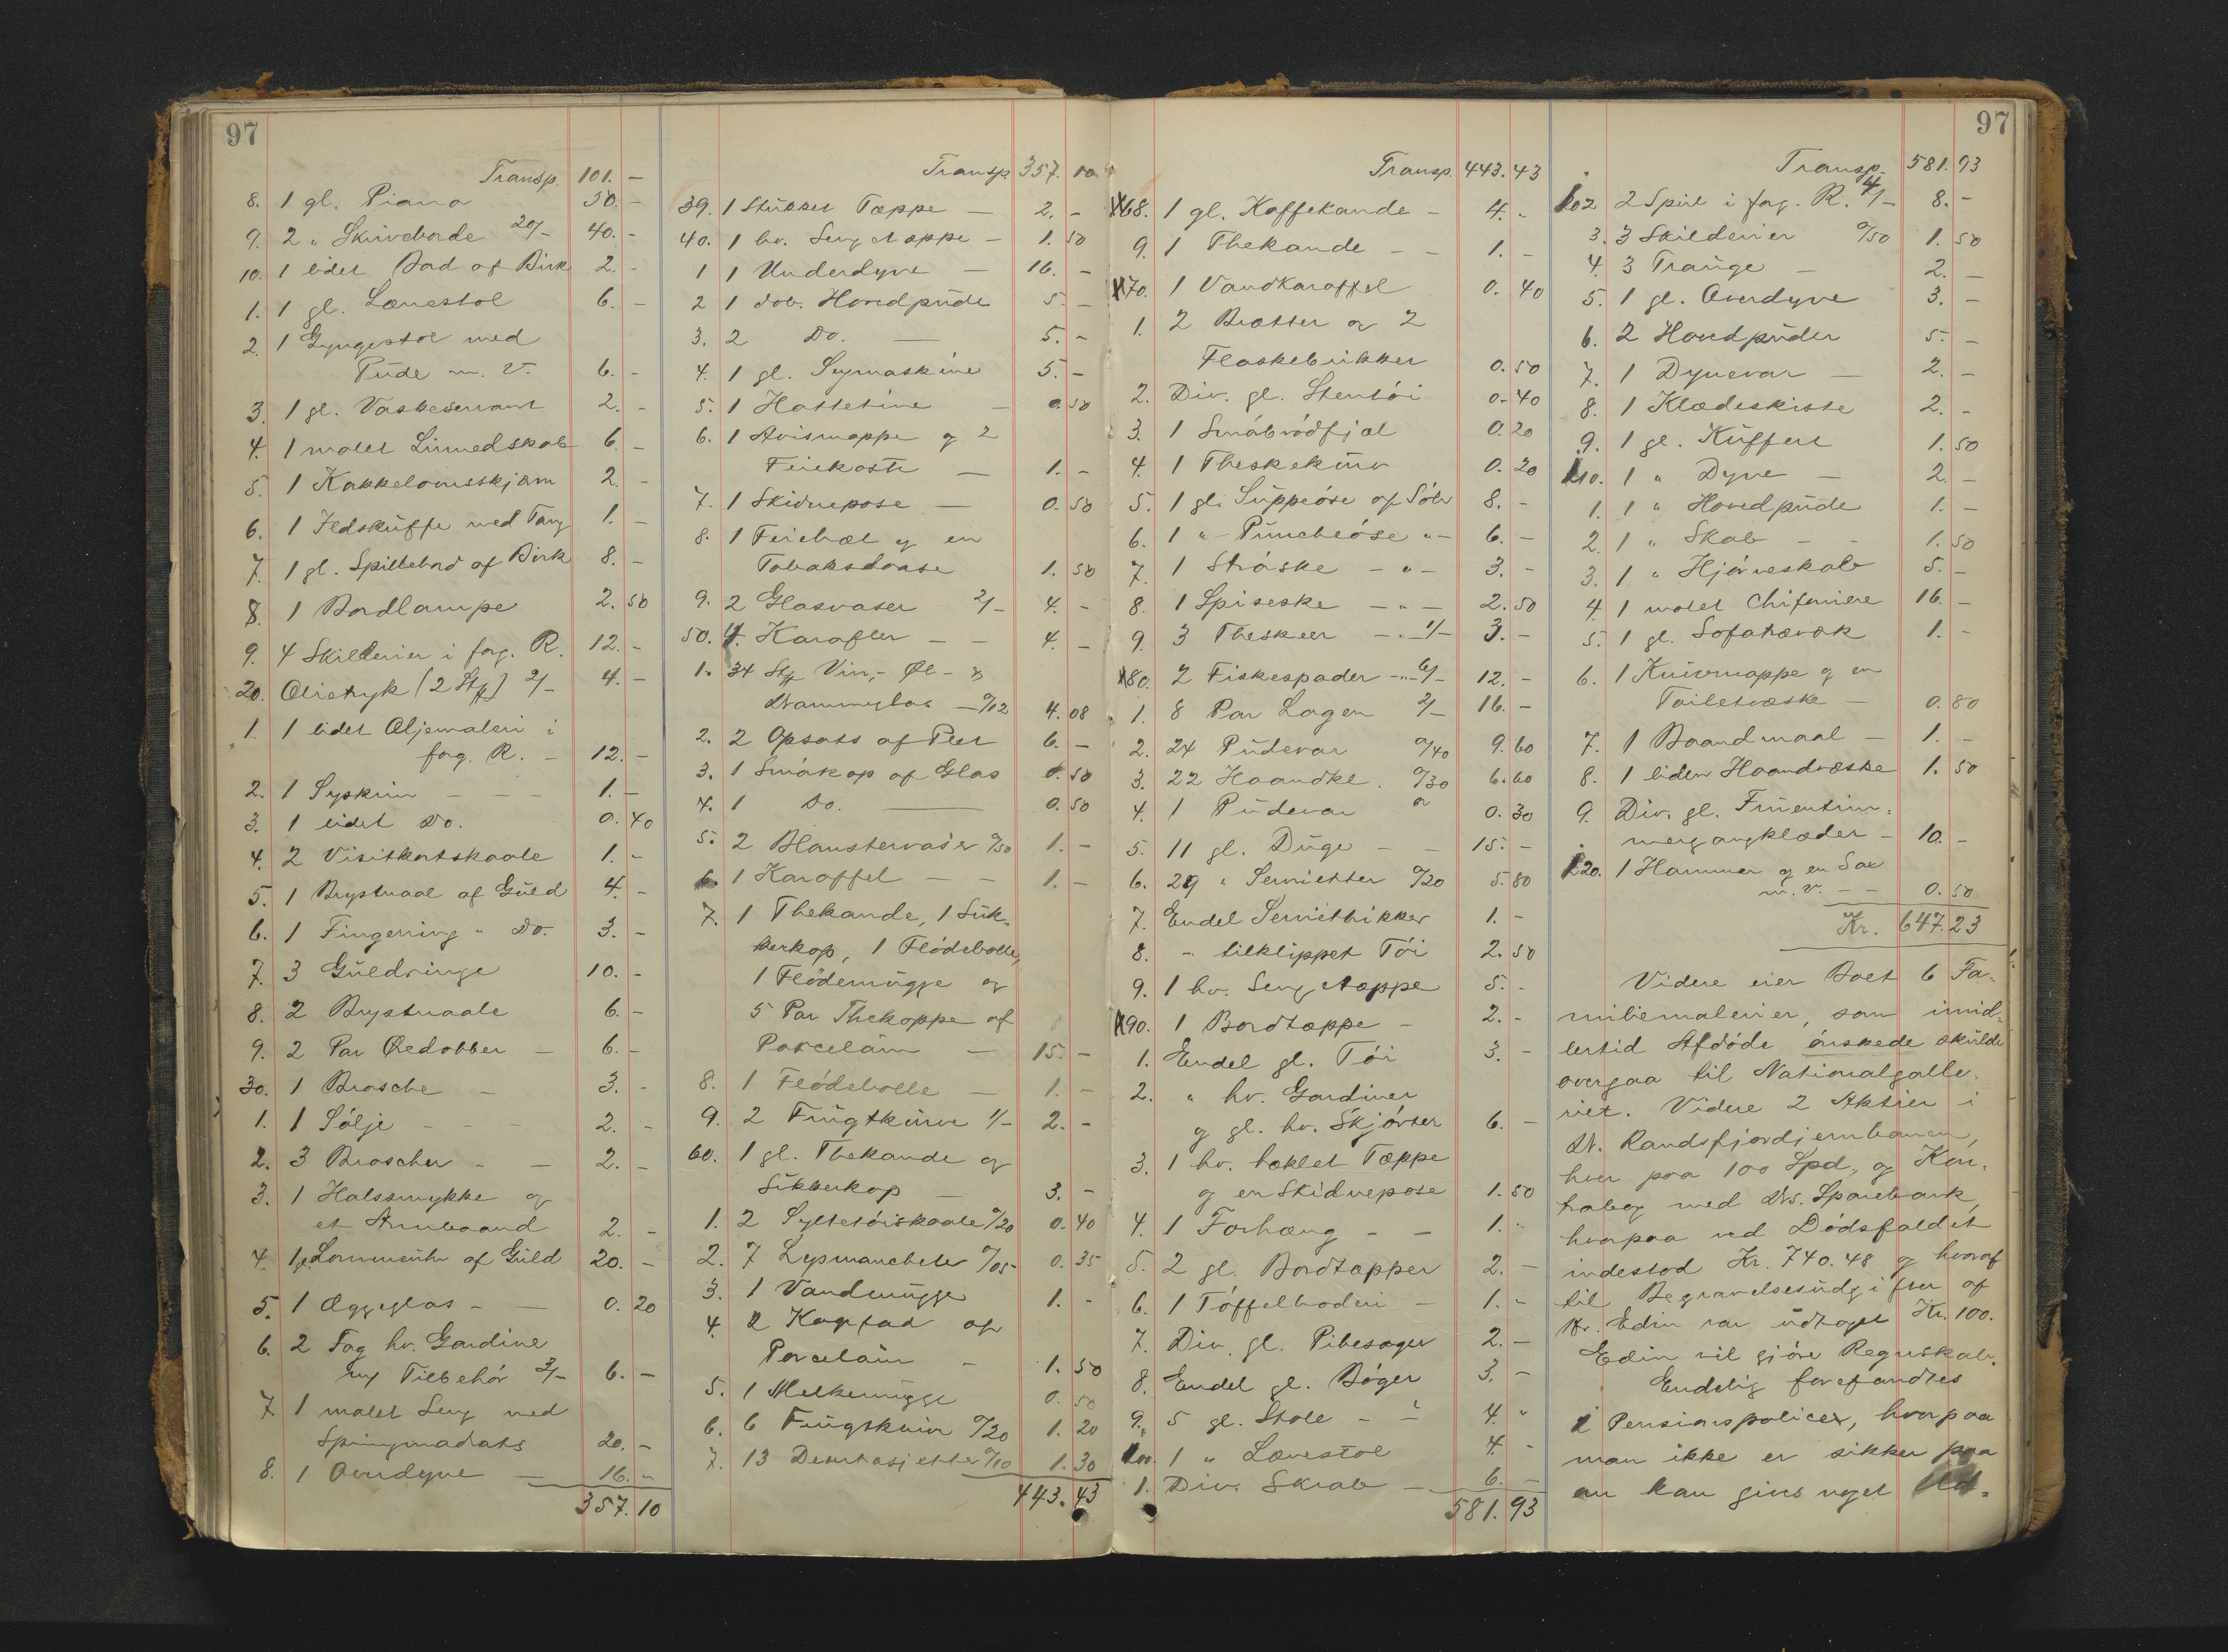 97
Transp. 101. -
8. 1 gl. Piano 50. -
9. 2 " Skriveborde 20/- 40. -
10. 1 lidet Bord af Birk 2. -
1. 1 gl. Lænestol 6. -
2. 1 Gyngestol med
Pude m. V. 6. -
3. 1 gl. Vaskeservant 2. -
4. 1 malet Linnedskab 6. -
5. 1 Kakkelovnsskjærm 2. -
6. 1 Ildskuffe med Tang 1. -
7. 1 gl. Spillebord af Birk 8. -
8. 1 Bordlampe 2. 50
9. 4 Skillerier i forg. R. 12. -
20. Olietryk (2 Stk) 2/- 4. -
1. 1 lidet Oljemaleri i
forg. R. - 12. -
2. 1 Syskrin - - - 1. -
3. 1 lidet Do. 0. 40
4. 2 Visitkortskaale 1. -
5. 1 Brystnaal af Guld 4. -
6. 1 Fingerring " Do. 3. -
7. 3 Guldringe 10. -
8. 2 Brystnaale 6. -
9. 2 Par Øredobber - 6. -
30. 1 Brosche - 3. -
1. 1 Sølje - - - 2. -
2. 3 Broscher - - 2. -
3. 1 Halssmykke og
et Armbaand 2. -
4. 1 gl. Lommeuhr af Guld 20. -
5. 1 Æggeglas - - 0. 20
6. 2 Fag hv. Gardine
m/ Tilbehør 3/- 6. -
7. 1 malet Seng med
Springmadrats 20. -
8. 1 Overdyne - 16. -
357. 10
Transp. 357. 10
39. 1 Stukket Tæppe - 2. -
40. 1 hv. Sengetæppe - 1. 50
1 1 Underdyne - 16. -
2 1 dob. Hovedpude 5. -
3. 2 Do. - 5. -
4. 1 gl. Symaskine 5. -
5. 1 Hattetine - 0. 50
6. 1 Avismappe og 2
Feiekoste - 1. -
7. 1 Skidnepose - 0. 50
8. 1 Feiebræt og en
Tobaksdaase 1. 50
9. 2 Glasvaser 2/- 4. -
50. 4 Karafler - - 4. -
1. 34 Stk Vin,- Øl- &
Dramneglas - 0/12 4. 08
2. 2 Opsats af Plet 6. -
3. 1 Småkop af Glas 0. 50
4. 1 Do. - 0. 50
5. 2 Blomstervaser 0/50 1. -
6. 1 Karaffel - - 1. -
7. 1 Thekande, 1 Suk-
kerkop, 1 Flødebolle,
1 Flødemugge og
5 Par Thekoppe af
Porcelain - 15. -
8. 1 Flødebolle - 1. -
9. 2 Frugtkurve 1/- 2. -
60. 1 gl. Thekande og
Sukkerkop - 3. -
1. 2 Syltetøiskaale 0/20 0. 40
2. 7 Lysmancheter 0/05 0. 35
3. 1 Vandmugge 1. -
4. 2 Kagfad af
Porcelain - 1. 50
5. 1 Melkemugge 0. 50
6. 6 Frugtkniv 0/20 1. 20
7. 13 Dessertasjetter 0/10 1. 30
443. 43
Transp. 443. 43
68. 1 gl. Kaffekande - 4. -
9. 1 Thekande - - 1. -
70. 1 Vandkaraffel 0. 40
1. 2 Brætter og 2
Flaskebrikker 0. 50
2. Div. gl. Stentøi 0. 40
3. 1 Småbrødfjæl 0. 20
4. 1 Theskekurv 0. 20
5. 1 gl. Suppeøse af Sølv 8. -
6. 1 " Puncheøse " - 6. -
7. 1 Strøske - " - 3. -
8. 1 Spiseske - " - 2. 50
9. 3 Theskeer - " - 1/- 3. -
80. 2 Fiskespader - " - 6/- 12. -
1. 8 Par Lagen 2/- 16. -
2. 24 Pudevar 0/40 9. 60
3. 22 Haandkl. 0/30 6. 60
4. 1 Pudevar a 0. 30
5. 11 gl. Duge - - 15. -
6. 29 " Servietter 0/20 5. 80
7. Endel Serviettrikker 1. -
8. - tilklippet Tøi 2. 50
9. 1 hv. Sengetæppe 5. -
90. 1 Bordtæppe - 2. -
1. Endel gl. Tøi 3. -
2. " hv. Gardiner
og gl. hv. Skjørter 6. -
3. 1 hv. hæklet Tæppe
og en Skidnepose 1. 50
4. 1 Forhæng - - 1. -
5. 2 gl. Bordtæpper 2. -
6. 1 Tøffelbroderi - 1. -
7. Div. gl. Pibesager 2. -
8. Endel gl. Bøger 3. -
9. 5 gl. Stole - - 4. -
100. 1 " Lænestol 4. -
1. Div. Skrab - 6. -
581. 93
97
Transp. 581. 93
102 2 Speil i forg. R. 4/- 8. -
3. 3 Skilderier 0/50 1. 50
4. 3 Trauge - 2. -
5. 1 gl. Overdyne 3. -
6. 2 Hovedpuder 5. -
7. 1 Dynevar - 2. -
8. 1 Klædeskiste 2. -
9. 1 gl. Kuffert 1. 50
110. 1 " Dyne - 2. -
1. 1 " Hovedpude 1. -
2. 1 " Skab - - 1. 50
3. 1 " Hjørneskab 5. -
4. 1 malet Chifoniere 16. -
5. 1 gl. Sofatræk 1. -
6. 1 Knivmappe og en
Toiletvæske - 0. 80
7. 1 Baandmaal - 1. -
8. 1 liden Haandvæske 1. 50
9. Div. gl. Fruentim-
mergangklæder - 10. -
120. 1 Hammer og en Sax
m. v. - - 0. 50
Kr. 647. 23
Videre eier Boet 6 Fa-
miliemalerier, som imid-
lertid Afdøde ønskede skulde
overgaa til Nationalgalle-
riet. Videre 2 Aktier i
Dr. Randsfjordjernbanen,
hver paa 100 Spd., og Kon-
trabog med Drs. Sparebank,
hvorpaa ved Dødsfaldet
indestod Kr. 740.48 og hvoraf
til Begravelsesudgifter af
Hr. Edin var udtaget Kr. 100.
Edin vil gjøre Regnskab.
Endelig forefandtes
2 Pensionspolicer, hvorpaa
man ikke er sikker paa
an kan gives noget Ud-